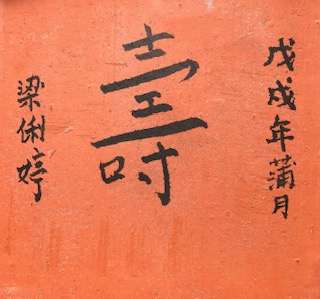 戊戌年蒲月
壽
梁俐婷